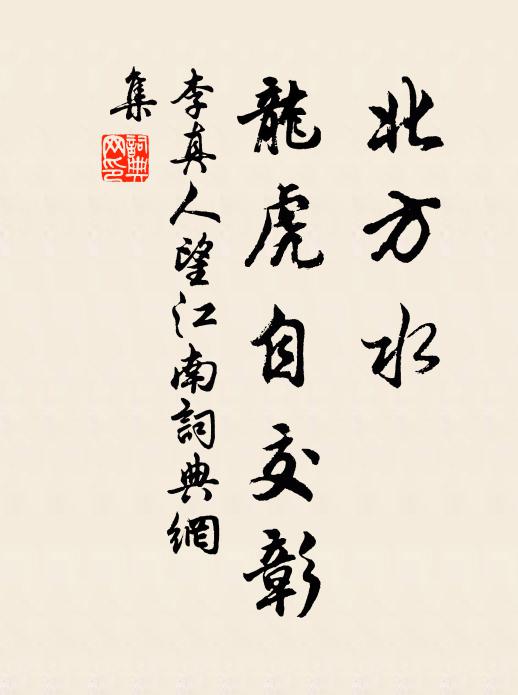 北方水
龍虎自交彰
李真人望江南詞典網
集
詞典網印